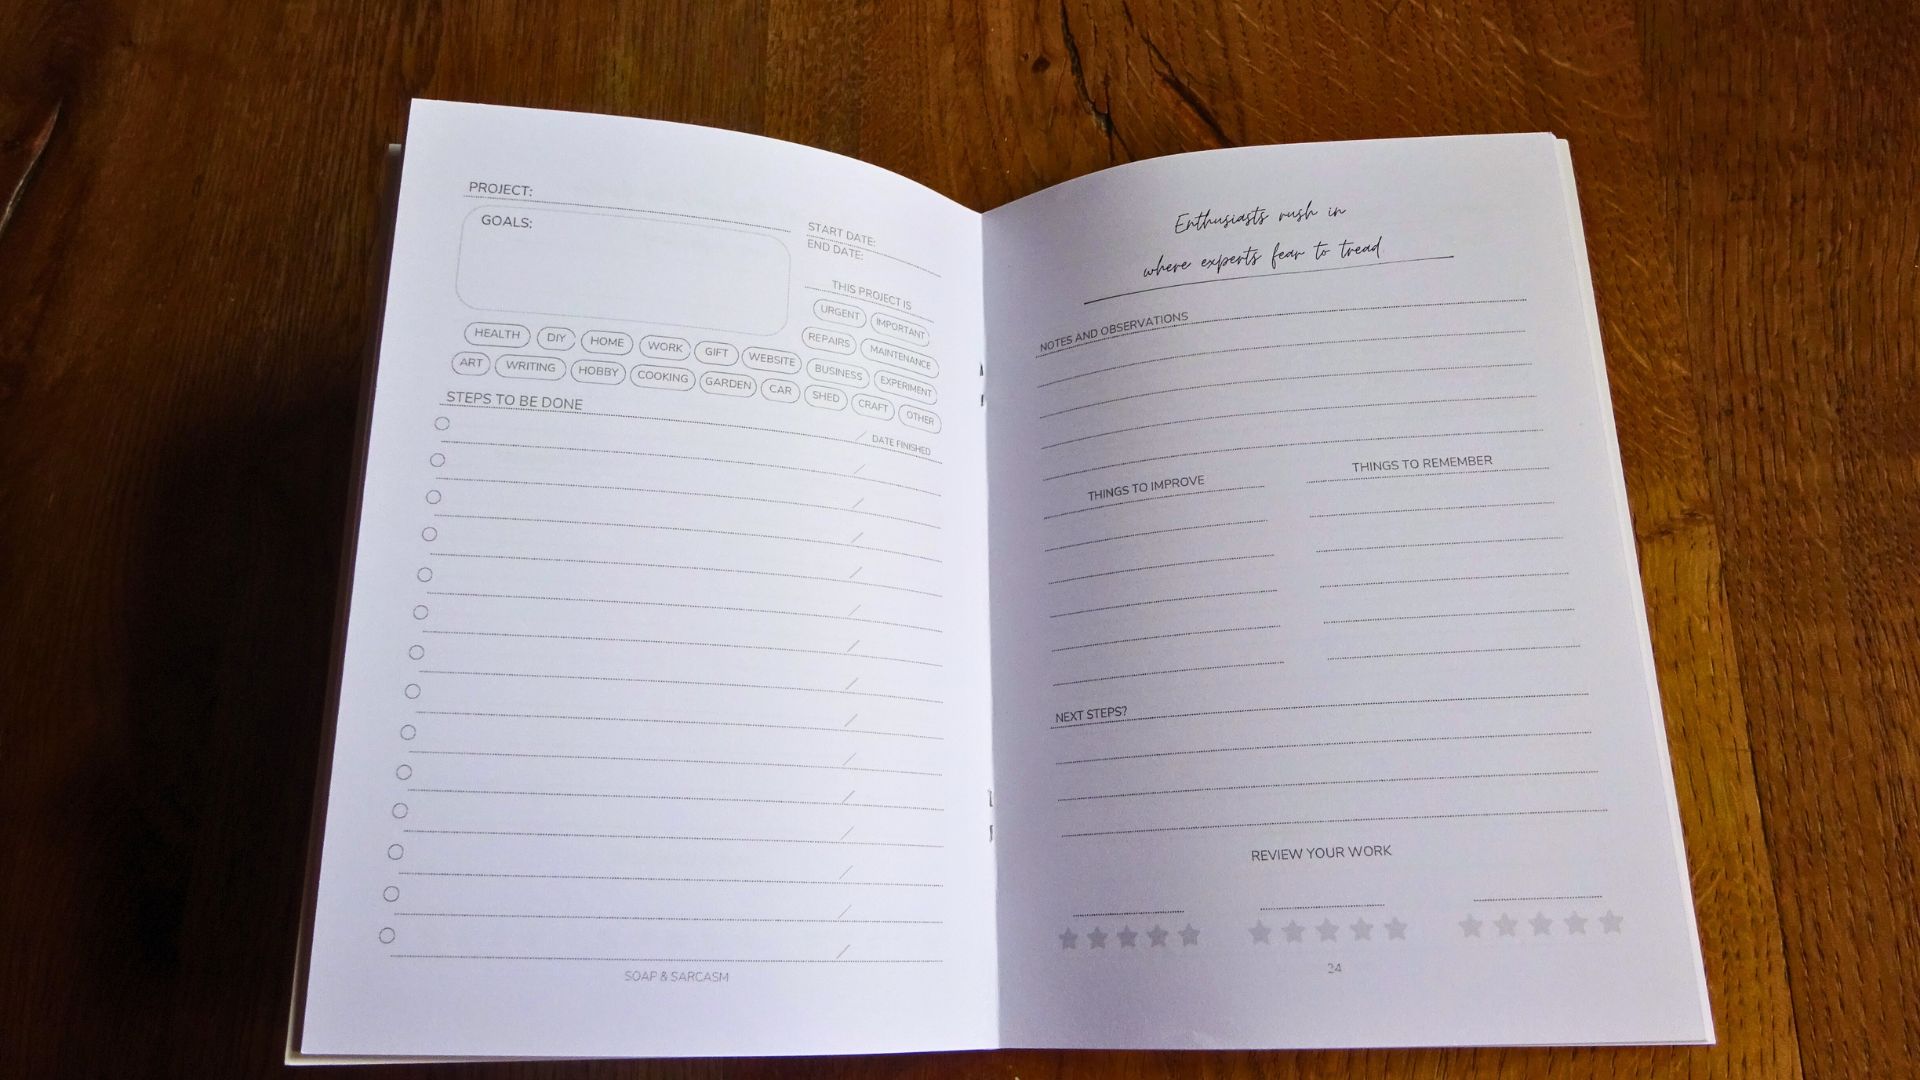 PROJECT:
GOALS:
START DATE:
END DATE:
THIS PROJECT IS
URGENT IMPORTANT
REPAIRS MAINTENANCE
HEALTH DIY HOME WORK GIFT WEBSITE BUSINESS EXPERIMENT
ART WRITING HOBBY COOKING GARDEN CAR SHED CRAFT OTHER
STEPS TO BE DONE
DATE FINISHED
SOAP & SARCASM
Enthusiasts rush in
where experts fear to tread
NOTES AND OBSERVATIONS
THINGS TO IMPROVE
THINGS TO REMEMBER
NEXT STEPS?
REVIEW YOUR WORK
24